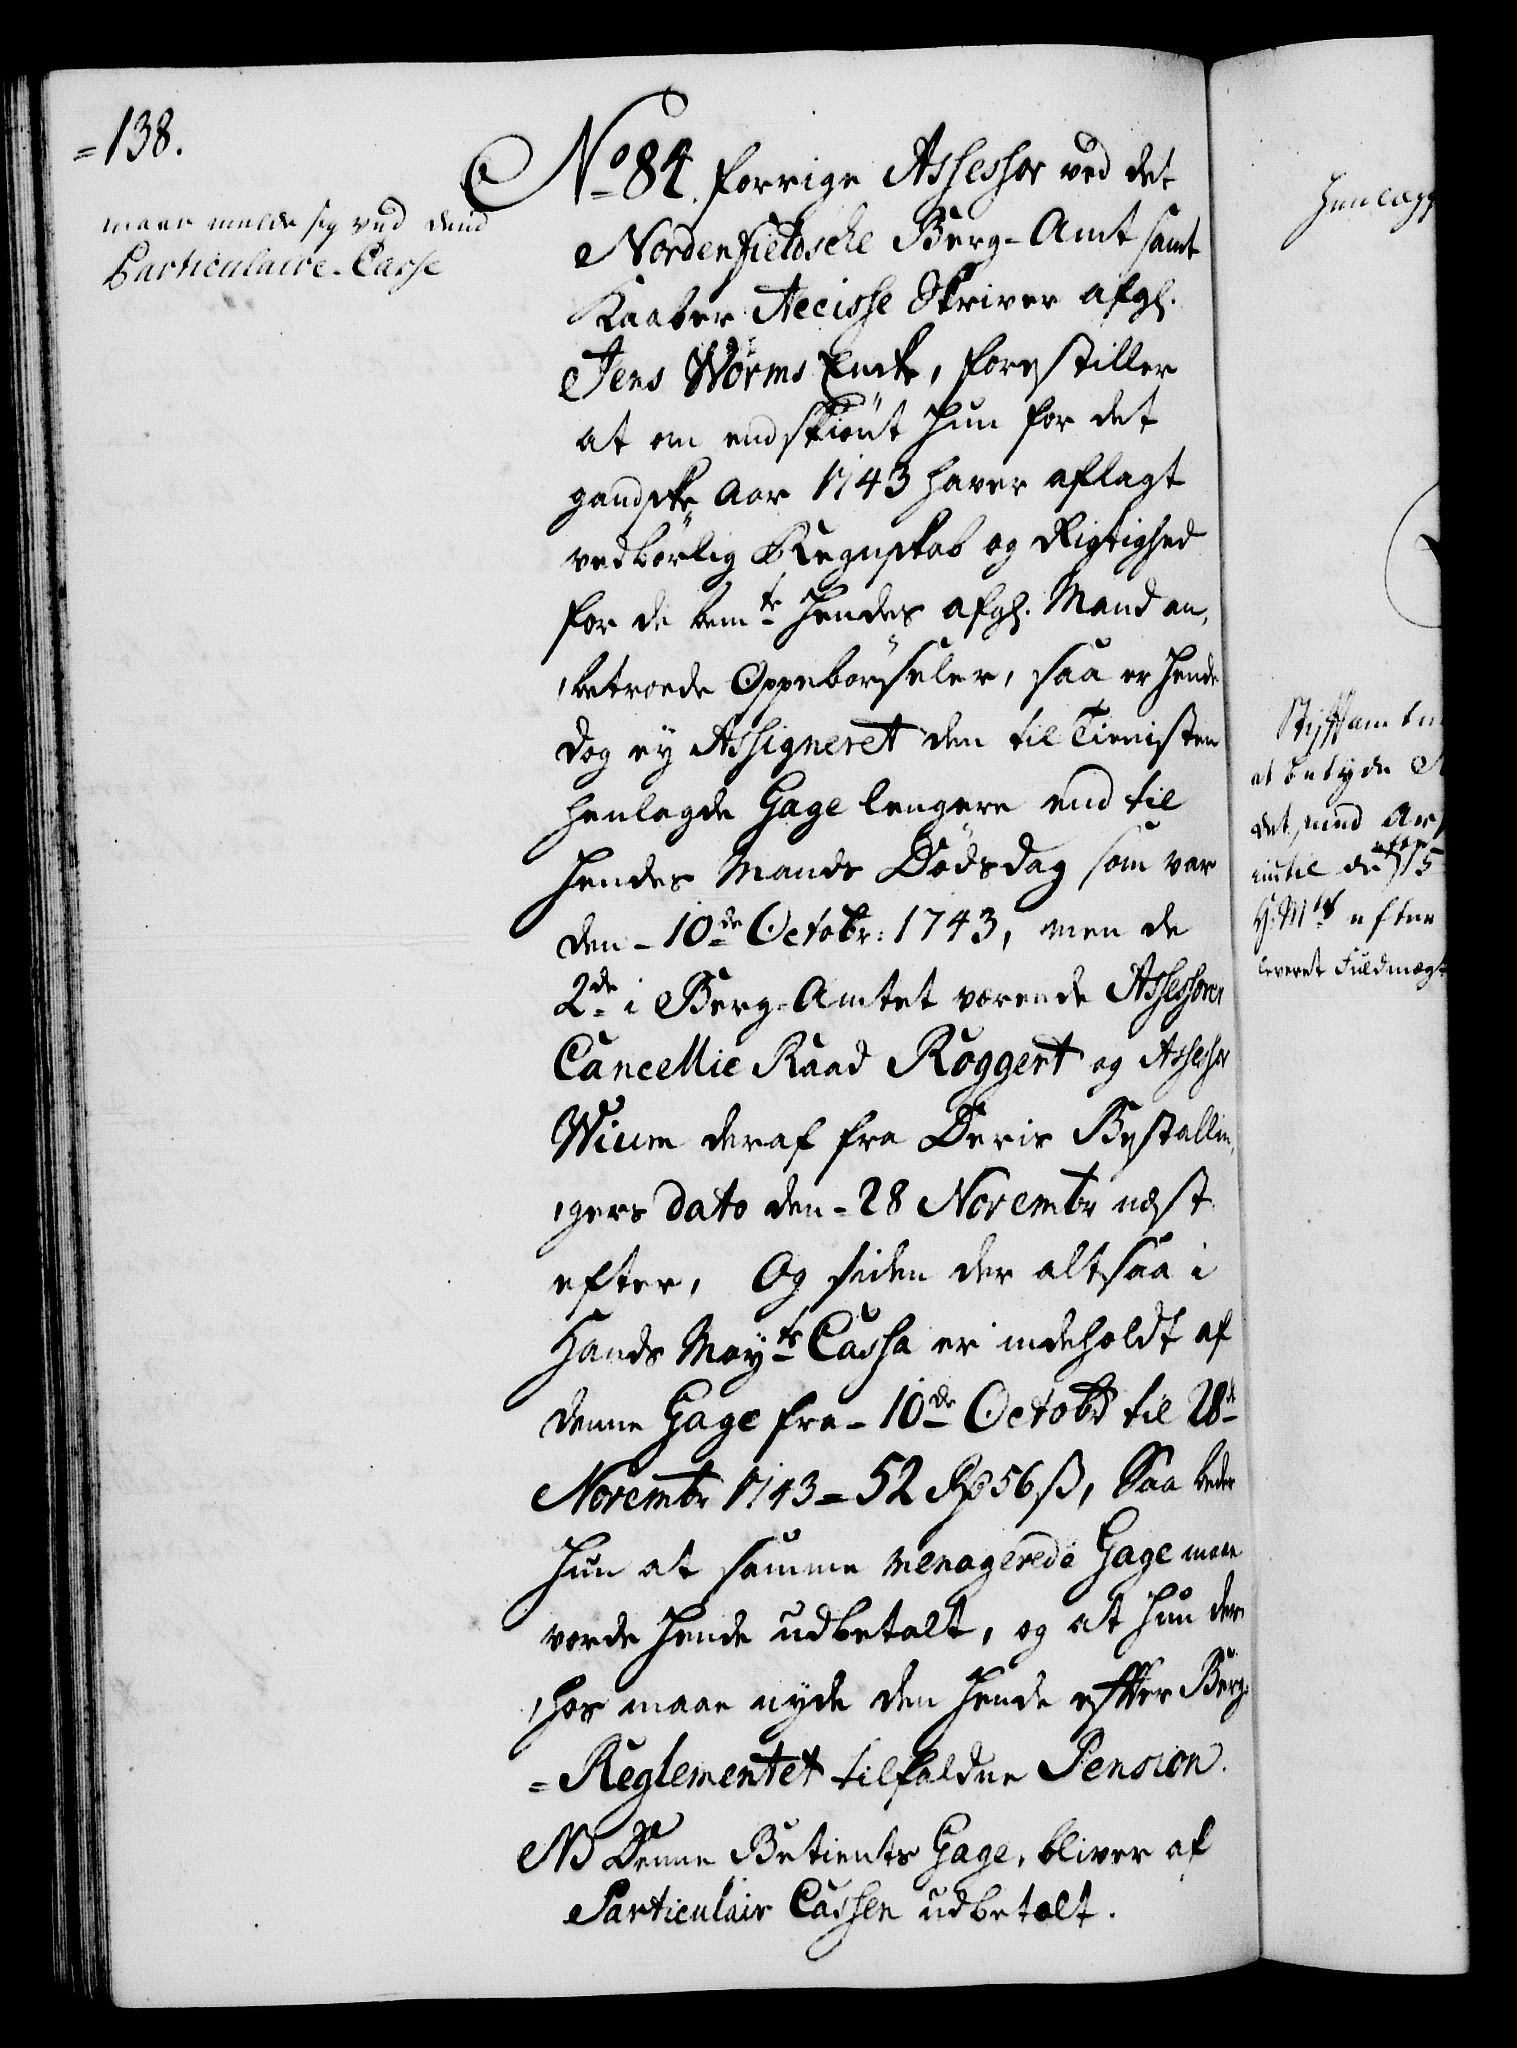 =138.
maae melde sig ved dend
Particulaire-Casse
No 84. forrige Assessor ved det
Nordenfieldsche Berg-Amt samt
Kaaber Accisse Skriver afgl.
Jens Worms Encke, forestiller
at om endskiønt hun for det
gandske Aar 1743 haver aflagt
vedbørlig Regnskab og Rigtighed
for de bemte hendes afgl. Mand an,
,betroede Oppebørseler, saa er hende
dog ey Assigneret den til Tienisten
henlagde Gage lengere end til
hendes Mands Dødsdag som var
den-10de Octobr: 1743, men de
2de i Berg-Amtet værende Assessorer
Cancellie Raad Roggert og Assessor
Wium deraf fra Deris Bestallin,
,gers dato den-28 Novembr næst
efter, Og siden der altsaa i
Hands Mayts Cassa er indeholdt af
denne Gage fra-10de Octobr til 28de
Novembr 1743=52 Rd 56 ß, Saa beder
hun at samme menagerede Gage maae
vorde hende udbetalt, og at hun der,
,hos maae nyde den hende effter Berg-
=Reglementet tilfaldne Pension.
NB Denne Betients Gage, bliver af
Particulair Cassen udbetalt.
Henlægg
Stiftamtm
at betyde
det, med
indtil de
H. Mts efter
leveret Fuldmægt